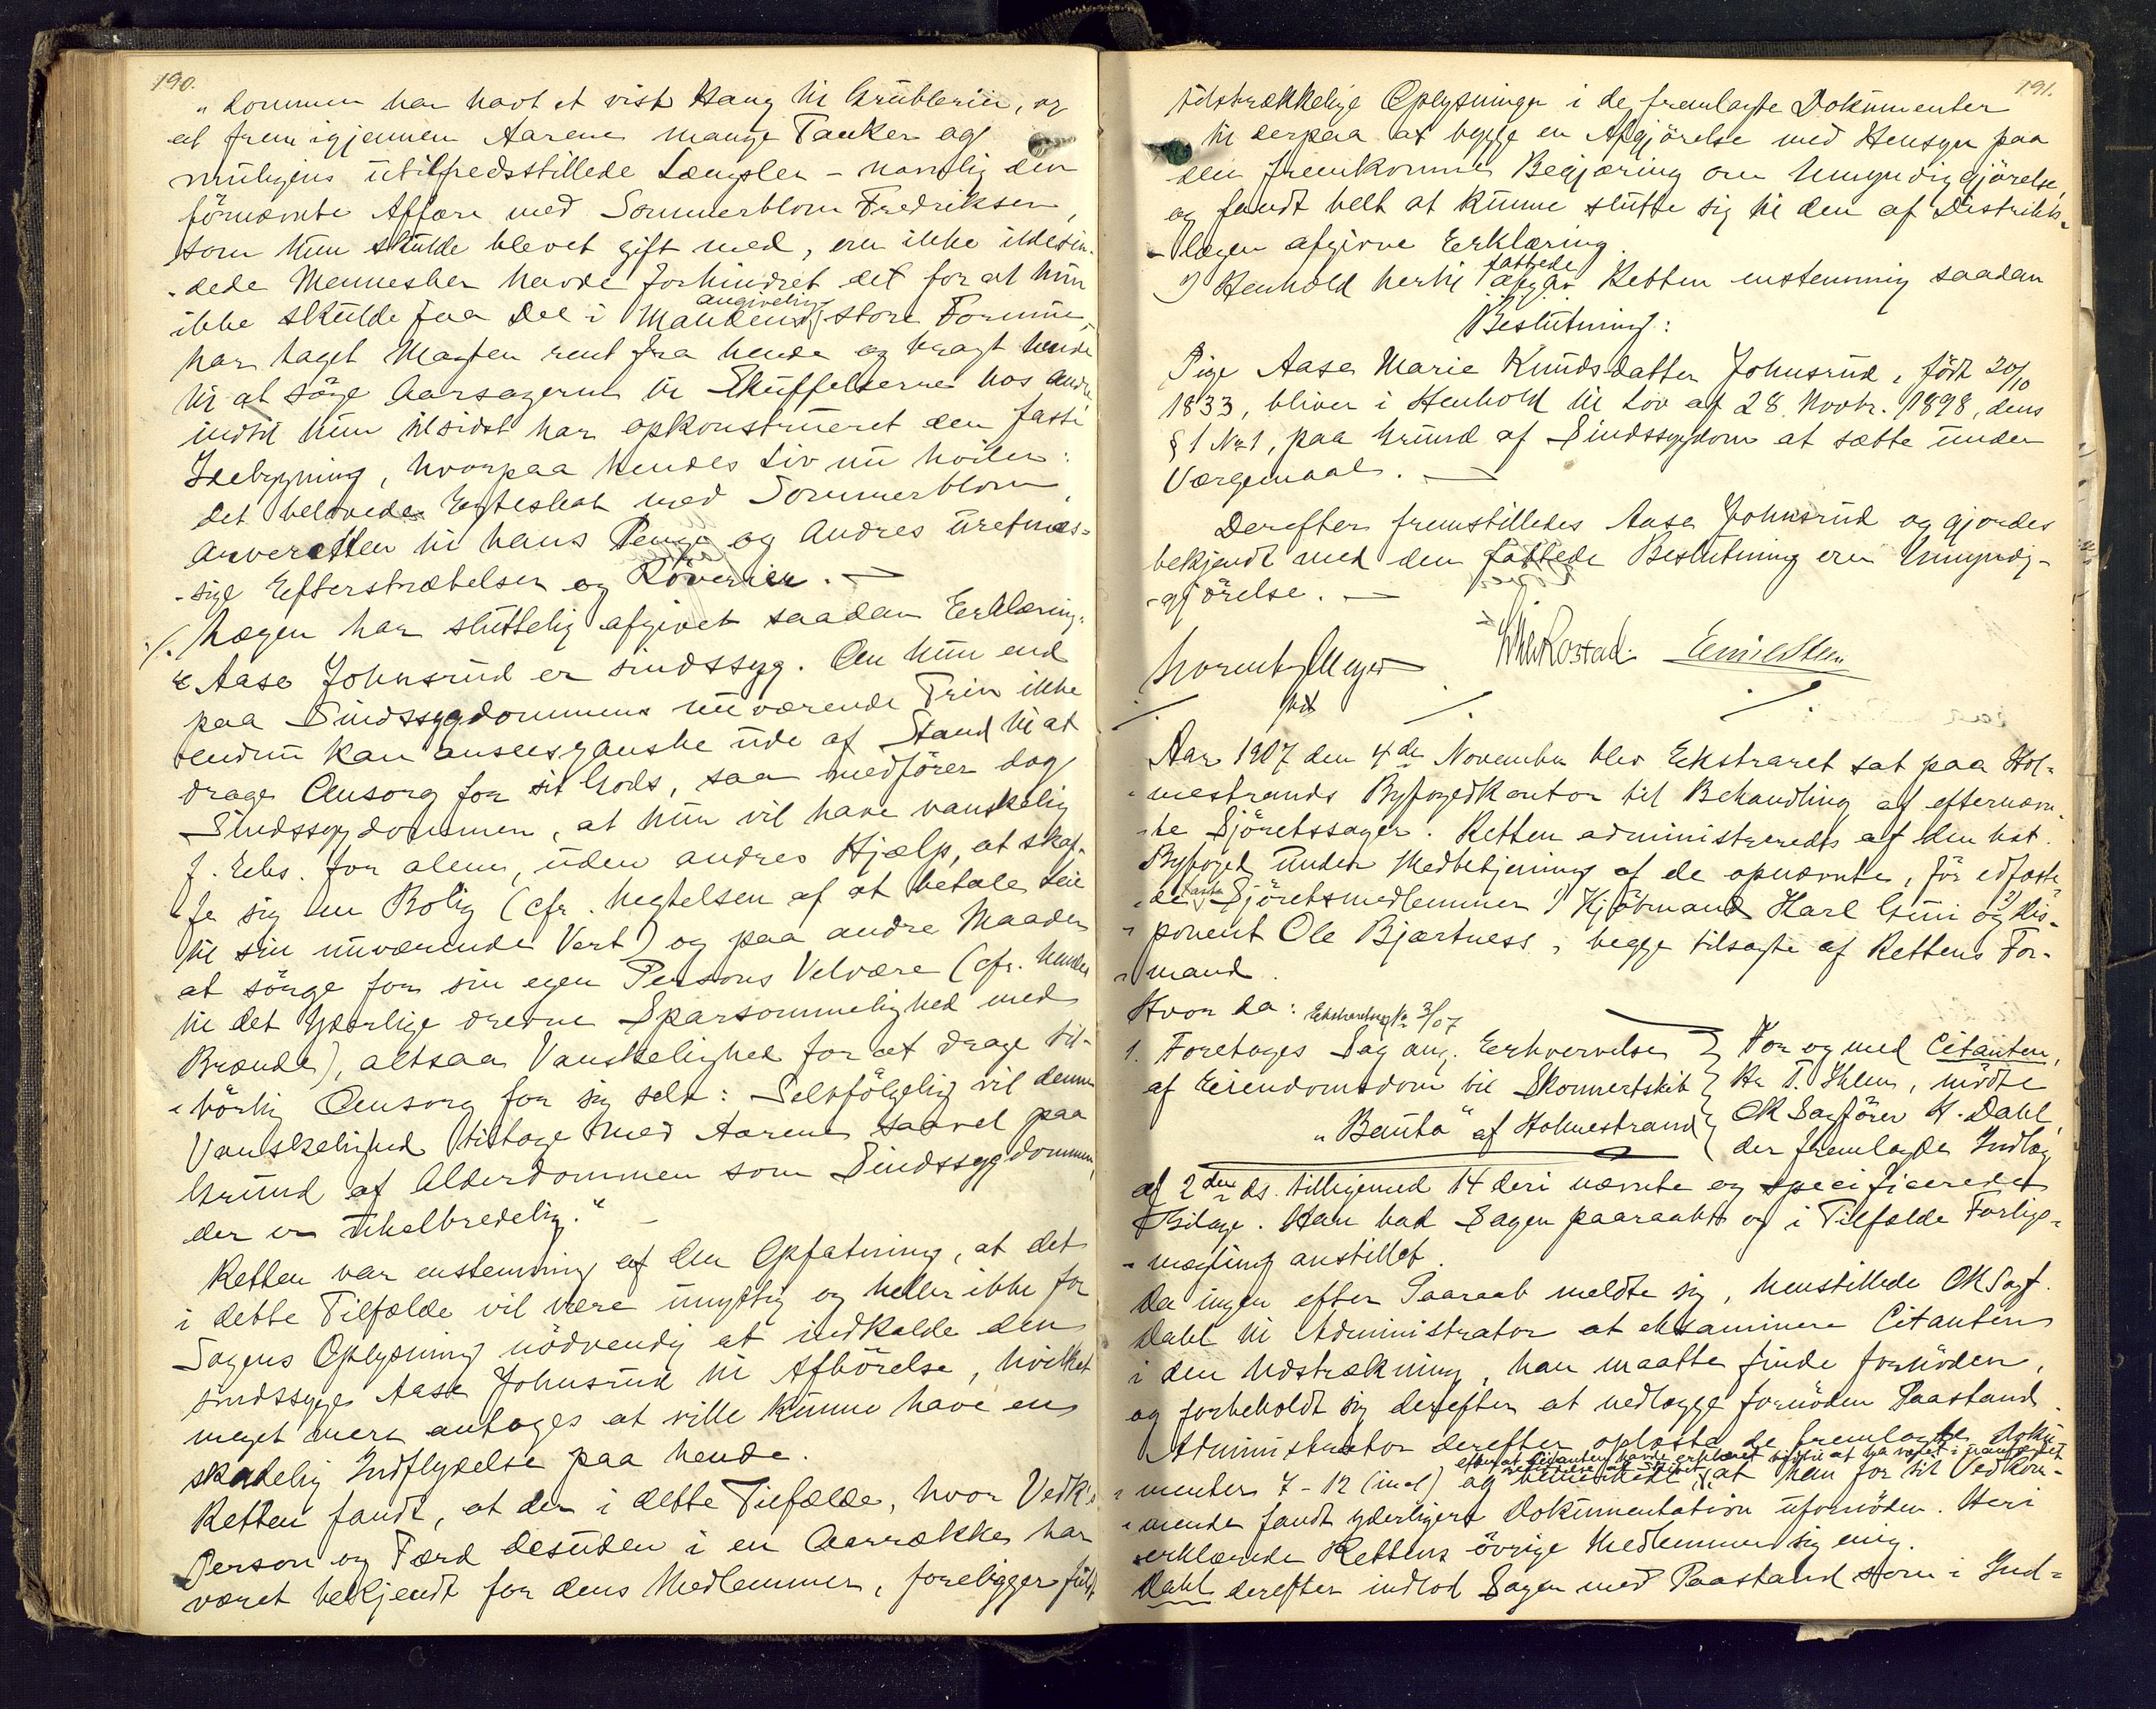 190.
"dommen har havt et vist Hang til Grublerier, og
at frem igjennem Aarene mange Tanker og
muligens utilfredsstillede Længsler - navnlig den
förnævnte Affære med Sommerblom Fredriksen,
som hun skulde blevet gift med, om ikke ildesin-
-dede Mennesker havde forhindret det for at hun
angivelig
ikke skulde faa Del i Mandens store Formue,
har taget Magten rent fra hende og bragt hende
til at söge Aarsagerne til Skuffelserne hos Andre
indtil hun tilsidst har opkonstrueret den faste
Idebygning, hvorpaa hendes Liv nu hviler:
det belovede Egteskab med Sommerblom,
Arveretten til hans Penge og Andres uretmæs-
-sige Efterstræbelser og Röverier. —
./. Lægen har sluttelig afgivet saadan Erklæring:
"Aase Johnsrud er sindssyg. Om hun end
paa Sindssygdommens nuværende Trin ikke
endnu kan ansees ganske ude af Stand til at
drage Omsorg for sit Gods, saa medförer dog
Sindssygdommen, at hun vil have vanskelig
f. Eks. for alene, uden andres Hjælp, at skaf-
-fe sig en Bolig (cfr. Negtelsen af at betale Leie
til sin nuværende Vert) og paa andre Maader
at sörge for sin egen Persons Velvære (cfr. hendes
til det Yderlige drevne Sparsommelighed med
Brænde), altsaa Vanskelighed for at drage til-
-börlig Omsorg for sig selv: Selvfölgelig vil denne
Vanskelighed tiltage med Aarene saavel paa
Grund af Alderdommen som Sindssygdommen,
der er uhelbredelig." —
Retten var enstemmig af den Opfatning, at det
i dette Tilfælde vil være unyttig og heller ikke for
Sagens Oplysning nödvendig at indkalde den
sindssyge Aase Johnsrud til Afhörelse, hvilket
meget mere antages at ville kunne have en
skadelig Indflydelse paa hende.
Retten fandt, at der i dette Tilfælde, hvor Vedk's
Person og Færd desuden i en Aarrække har
været bekjendt for dens Medlemmer, foreligger fuldt
191.
tilstrækkelige Oplysninger i de fremlagte Dokumenter
til derpaa at bygge en Afgjörelse med Hensyn paa
den fremkomne Begjæring om Umyndiggjörelse,
og fandt helt at kunne slutte sig til den af Distrikts-
-lægen afgivne Erklæring.
fattede
I Henhold hertil afgav Retten enstemmig saadan
Beslutning:
Pige Aase Marie Knudsdatter Johnsrud, födt 20/10
1833, bliver i Henhold til Lov af 28 Novbr. 1898, dens
§ 1 No 1, paa Grund af Sindssygdom at sætte under
Værgemaal. —
Derefter fremstilledes Aase Johnsrud og gjordes
bekjendt med den fattede Beslutning om Umyndig-
-gjörelse. —
Lorentz Meyer Rostad. Emil Steen
Aar 1907 den 4de November blev Ekstraret sat paa Hol-
-mestrands Byfogedkontor til Behandling af efternævn-
-te Sjöretssager. Retten administreredes af den kst.
Byfoged under Medbetjening af de opnævnte, för edfæste-
-de faste Sjöretsmedlemmer 1) Kjöbmand Karl Gui og 2) Dis-
-ponent Ole Bjertness, begge tilsagte af Rettens For-
-mand.
Hvor da: Ekstraretssag No 3/07
1. Foretages Sag ang. Erhvervelse
af Eiendomsdom til Skonnertskib
"Bauta" af Holmestrand
For og med Citanten,
Hr T. Ihlen, mödte
OR Sagförer H. Dahl,
der fremlagde Indlæg
af 2den ds. tilligemed 14 deri nævnte og specificerede
Bilage. Han bad Sagen paaraabt og i Tilfælde Forligs-
-mægling anstillet.
Da ingen efter Paaraab meldte sig, henstillede ORSagf.
Dahl til Administrator at eksaminere Citanten
i den Udstrækning, han maatte finde fornöden,
og forbeholdt sig derefter at nedlægge fornöden Paastand.
Administrator derefter oplæste de fremlagte Doku-
efterat Citanten havde erklæret villig at ha været i
-menter 7 - 12 (incl) og bemærkede, at han for sit Vedkom-
-mende fandt yderligere Dokumentation ufornöden. Heri
erklærede Rettens övrige Medlemmer sig enig.
Dahl derefter indlod Sagen med Paastand som i Ind-